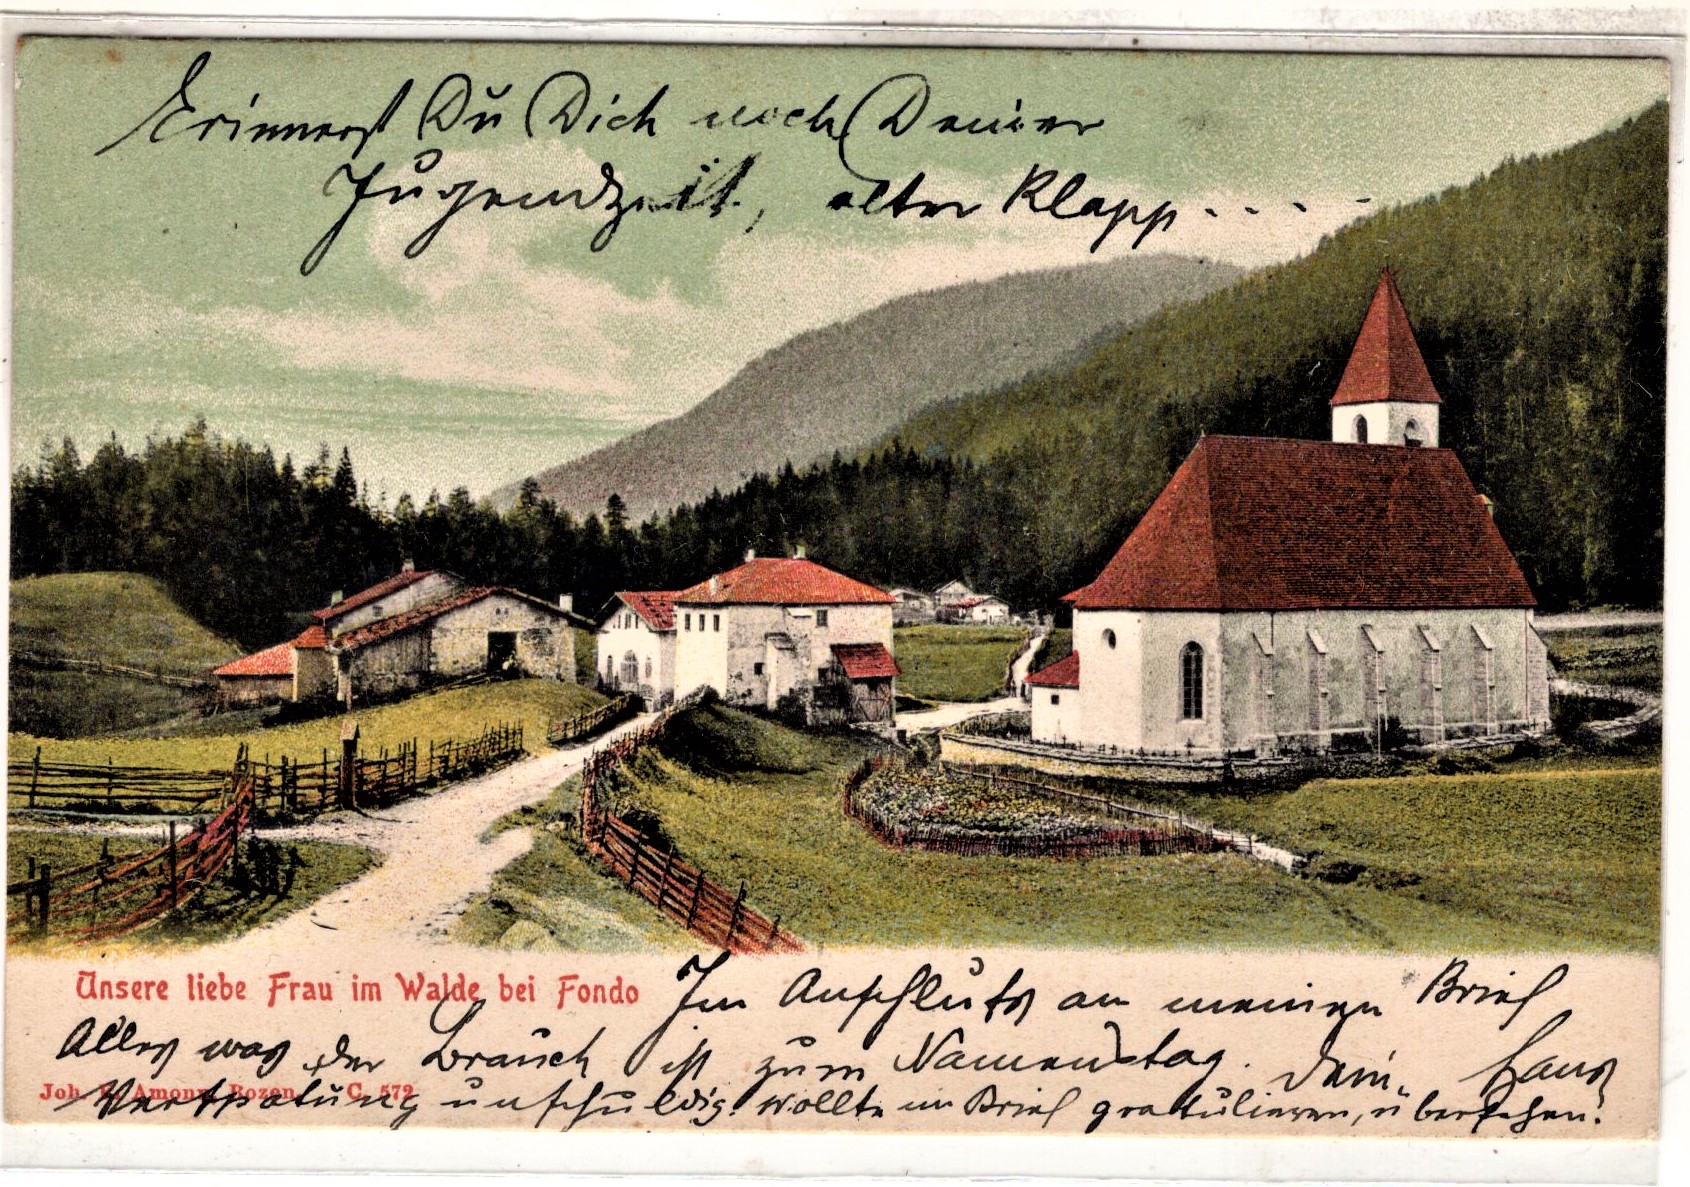 Erinnerst Du Dich noch Deiner
Jugendzeit, alter Klapp....
Unsere liebe Frau im Walde bei Fondo
Im Anschluß an meinen Brief
Alles was der Brauch ist zum Namenstag. Dein Hans
Joh. Amonn, Bozen C. 572
Verspätung unschuldig. Wollte im Brief gratulieren, übersehen!